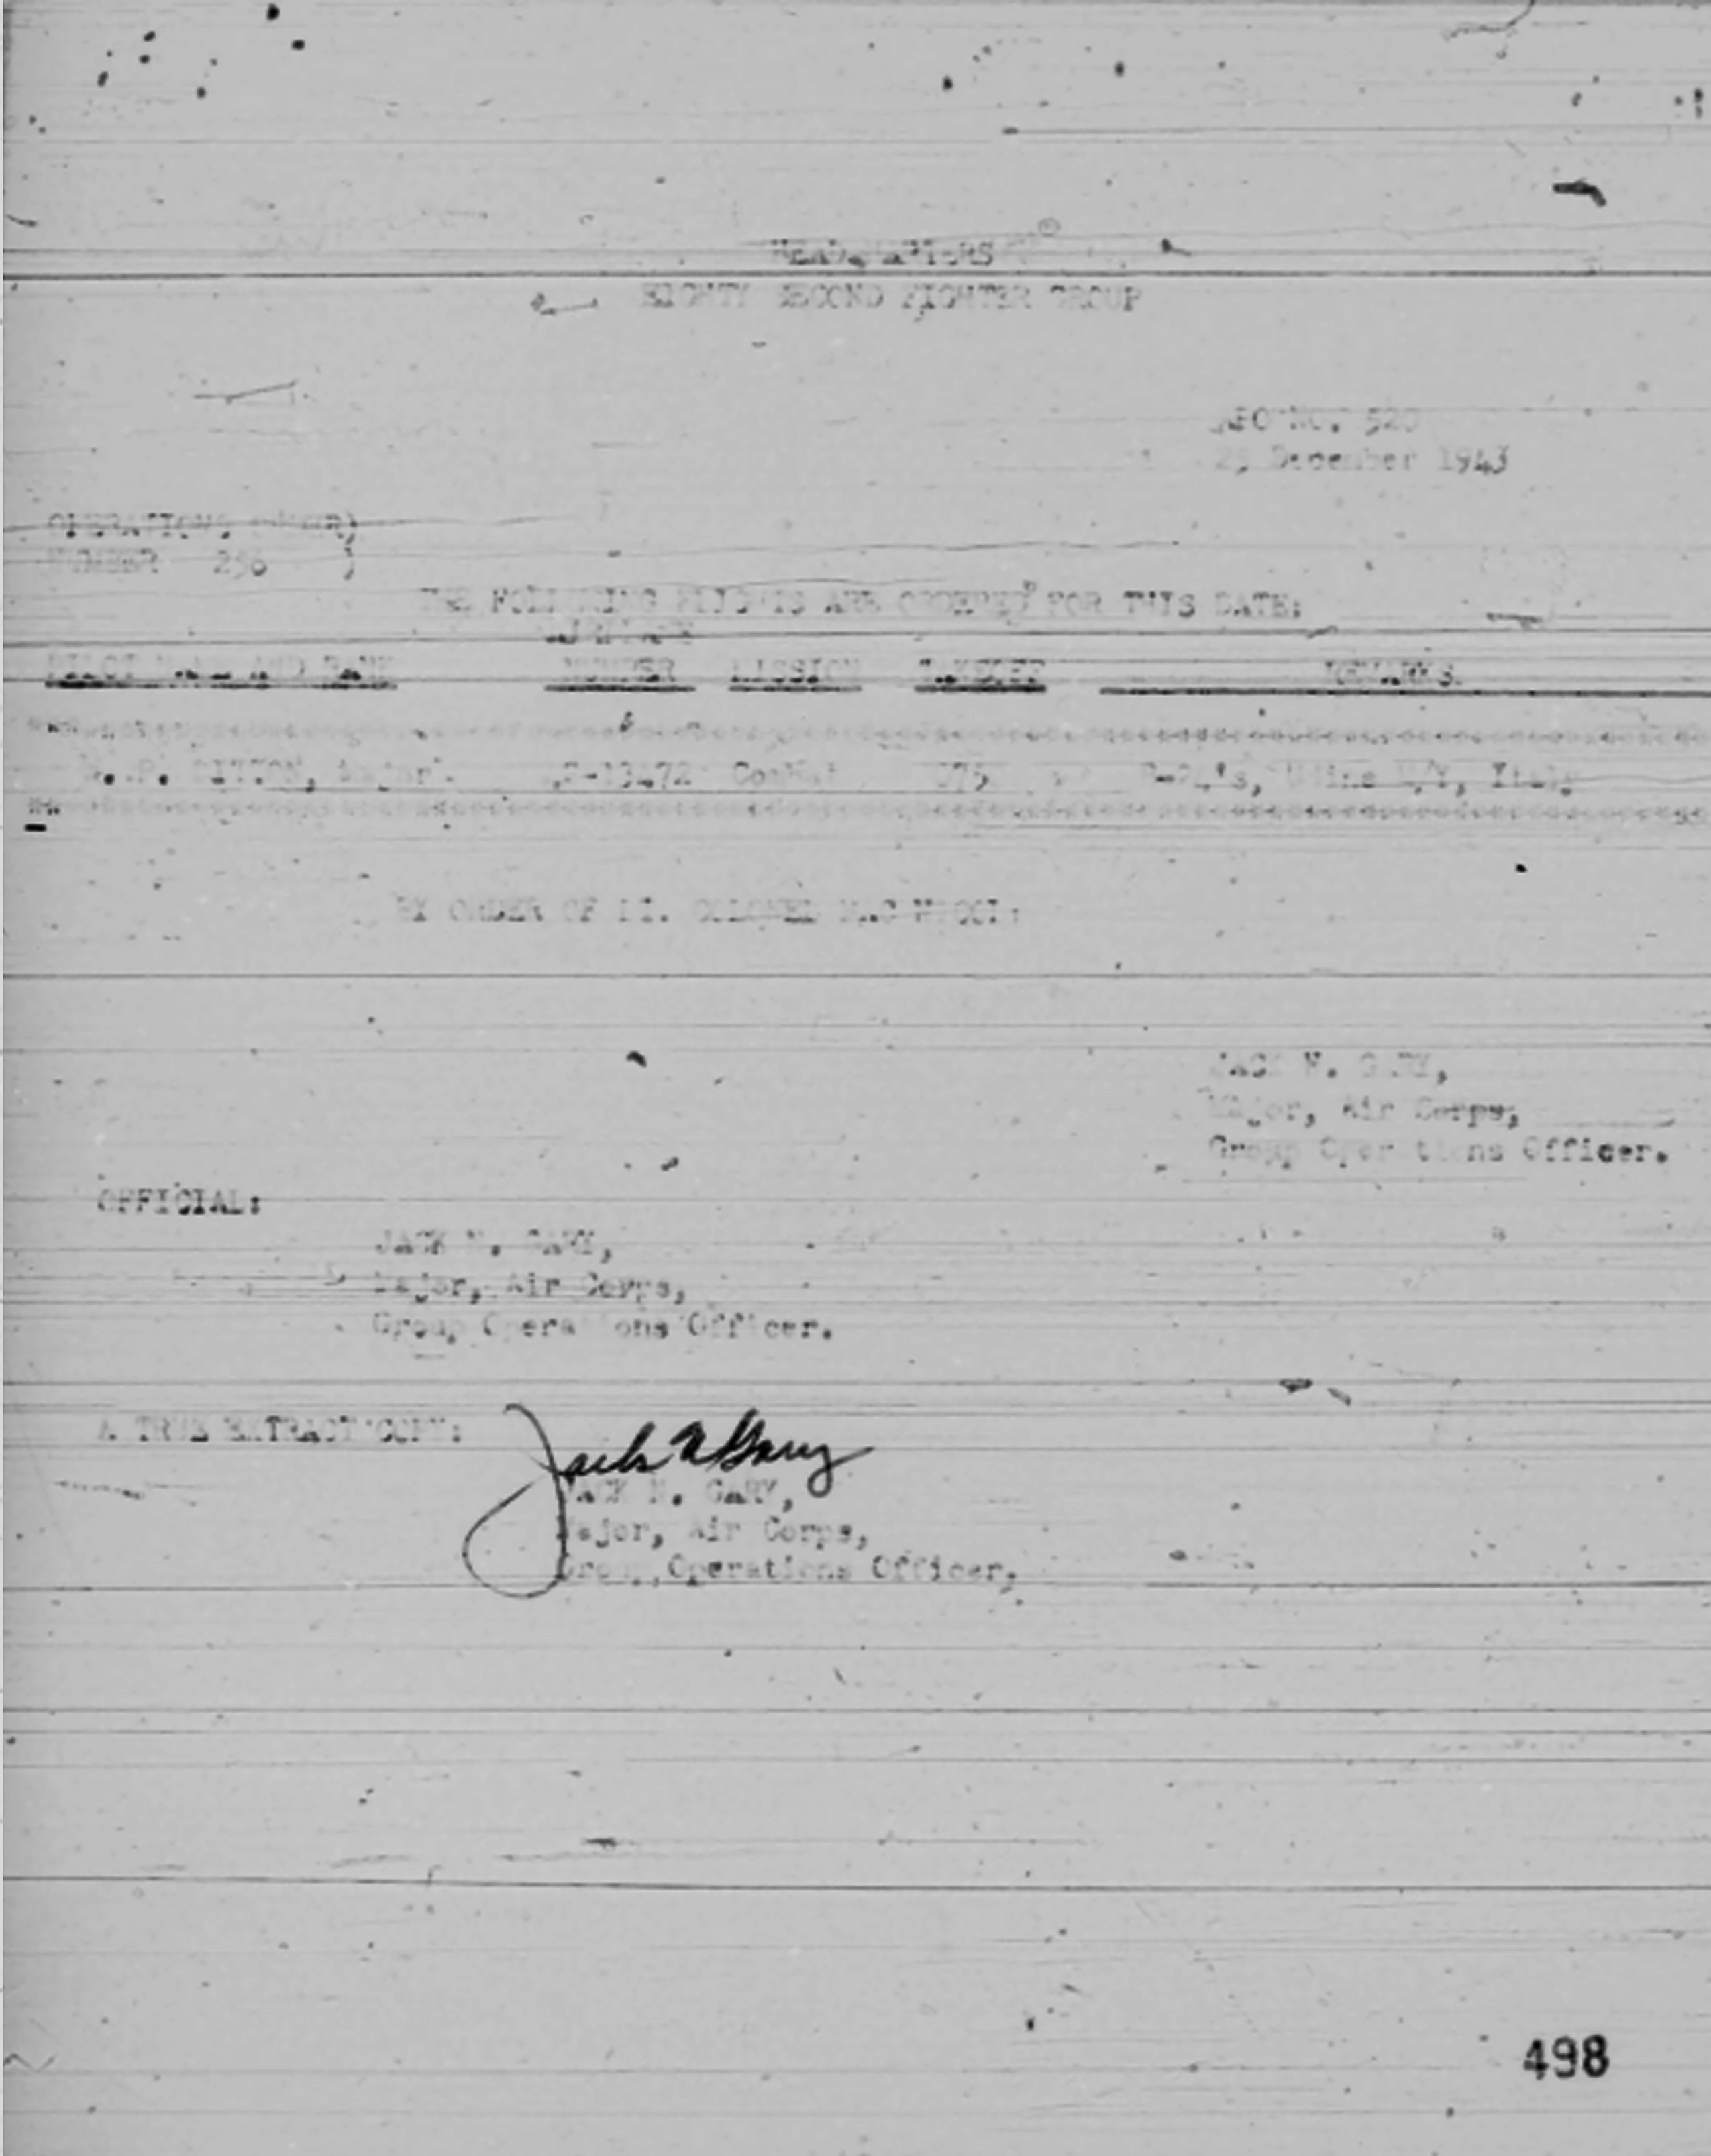 HEADQUARTERS
EIGHTY SECOND FIGHTER GROUP
APO No. 520
December 1943
OPERATIONS ORDER)
NUMBER 256 )
THE FOLLOWING FLIGHTS ARE ORDERED FOR THIS DATE:
AIRPLANE
PILOT NAME AND RANK NUMBER MISSION TAKEOFF REMARKS
Major. Combat Italy
BY ORDER OF LT. COLONEL
JACK N. GARY,
Major, Air Corps,
Group Operations Officer.
OFFICIAL:
JACK N. GARY,
Major, Air Corps,
Group Operations Officer.
A TRUE EXTRACT COPY:
Jack N Gary
JACK N. GARY,
Major, Air Corps,
Group Operations Officer.
498